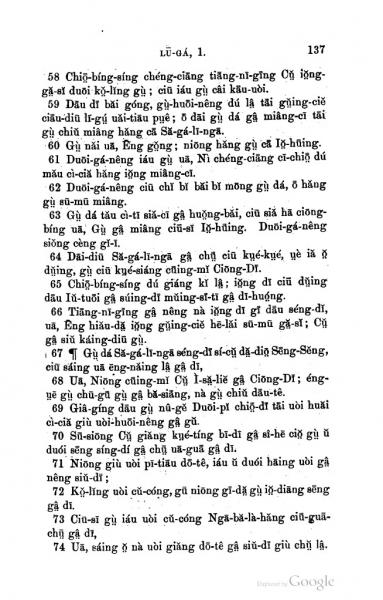 LŪ-GÁ, 1. 137
58 Chiō̤-bíng-síng chéng-ciāng tiāng-nī-gīng Cṳ̆ iō̤ng-
gă-sī duōi kō̤-lĭng gṳ̀ ; ciŭ iáu gṳ̀ câi kāu-uòi.
59 Dāu dĭ băi góng, gṳ̀-huōi-nêng dú lâ̤ tāi gŭing-ciĕ
ciāu-diŭ lī-gṳ́ uăi-tiāu pṳê ; ō dāi gṳ̀ dá gâ̤ miâng-cī tāi
gṳ̀ chiŭ miâng hāng cā Să-gá-lī-ngā.
60 Gṳ̀ nāi uā, Êng gō̤ng ; niōng hāng gṳ̀ cā Iō̤-hŭing.
61 Duōi-gá-nêng iáu gṳ̀ uā, Nì chéng-ciāng cī-chiō̤ dú
mău cì-ciă hāng iō̤ng miâng-cī.
62 Duōi-gá-nêng ciŭ chī bī băi bī mōng gṳ̀ dá, ō hăng
gṳ̀ sū-mū miâng.
63 Gṳ̀ dá tău cì-tī siă-cī gâ̤ huŏ̤ng-băi, ciŭ siă hā ciōng-
bíng uā, Gṳ̀ gâ̤ miâng ciŭ-sī Iō̤-hŭing. Duōi-gá-nêng
siōng cèng gī-ī.
64 Dāi-diŭ Să-gá-lī-ngā gâ̤ chṳ̄ ciŭ kṳé-kṳé, ṳè iă ō̤
dṳ̆ing, gṳ̀ ciŭ kṳé-siáng cŭing-mī Ciōng-Dĭ.
65 Chiō̤-bíng-síng dú giáng kī lâ̤ ; iō̤ng dī ciŭ dṳ̆ing
dāu Iŭ-tuōi gâ̤ súing-dī mŭing-sī-tī gâ̤ dī-huó̤ng.
66 Tiāng-nī-gīng gâ̤ nêng nà iō̤ng dī gī dāu séng-dī,
uā, Êng hiāu-dă̤ iō̤ng gŭing-ciĕ hē-lāi sū-mū gă-sī ; Cṳ̆
gâ̤ siŭ káing-diŭ gṳ̀.
67 ¶ Gṳ̀ dá Să-gá-lī-ngā séng-dī sí-cṳ̆ dă-diō̤ Sēng-Sĕng,
ciŭ sáing uā ēng-năing lâ̤ gâ̤ dī,
68 Uā, Niōng cŭing-mī Cṳ̆ Ī-să̤-liĕ gâ̤ Ciōng-Dĭ ; éng-
ṳē gṳ̀ chṳ̄-gṳ̀ gṳ̀ gâ̤ bă-siāng, nà gṳ̀ chiŭ dău-tê.
69 Giâ-gíng dău gṳ̀ nŭ-gĕ Duōi-pī chiō̤-dī tāi uòi huăi
cì-ciă giŭ uòi-huōi-nêng gâ̤ gŭ.
70 Sŭ-siōng Cṳ̆ giăng kṳé-tíng bī-dī gâ̤ sî-hē ciō̤ gṳ̀ ŭ
duói sēng síng-dí gâ̤ chṳ̄ uā-guā gâ̤ dī.
71 Niōng giŭ uòi pī-tiāu dō-tê, iáu ŭ duói hāing uòi gâ̤
nêng siŭ-dī ;
72 Kō̤-lĭng uòi cŭ-cóng, gŭ niōng gī-dă̤ gṳ̀ iō̤-diāng sĕng
gâ̤ dī.
73 Ciŭ-sī gṳ̀ iáu uòi cŭ-cóng Ngă-bă-là-hăng ciŭ-guā-
chṳ̄ gâ̤ dī,
74 Uā, sáing ō̤ nà uòi giăng dō-tê gâ̤ siŭ-dī giŭ chṳ̄ lâ̤.
Digitized by Google